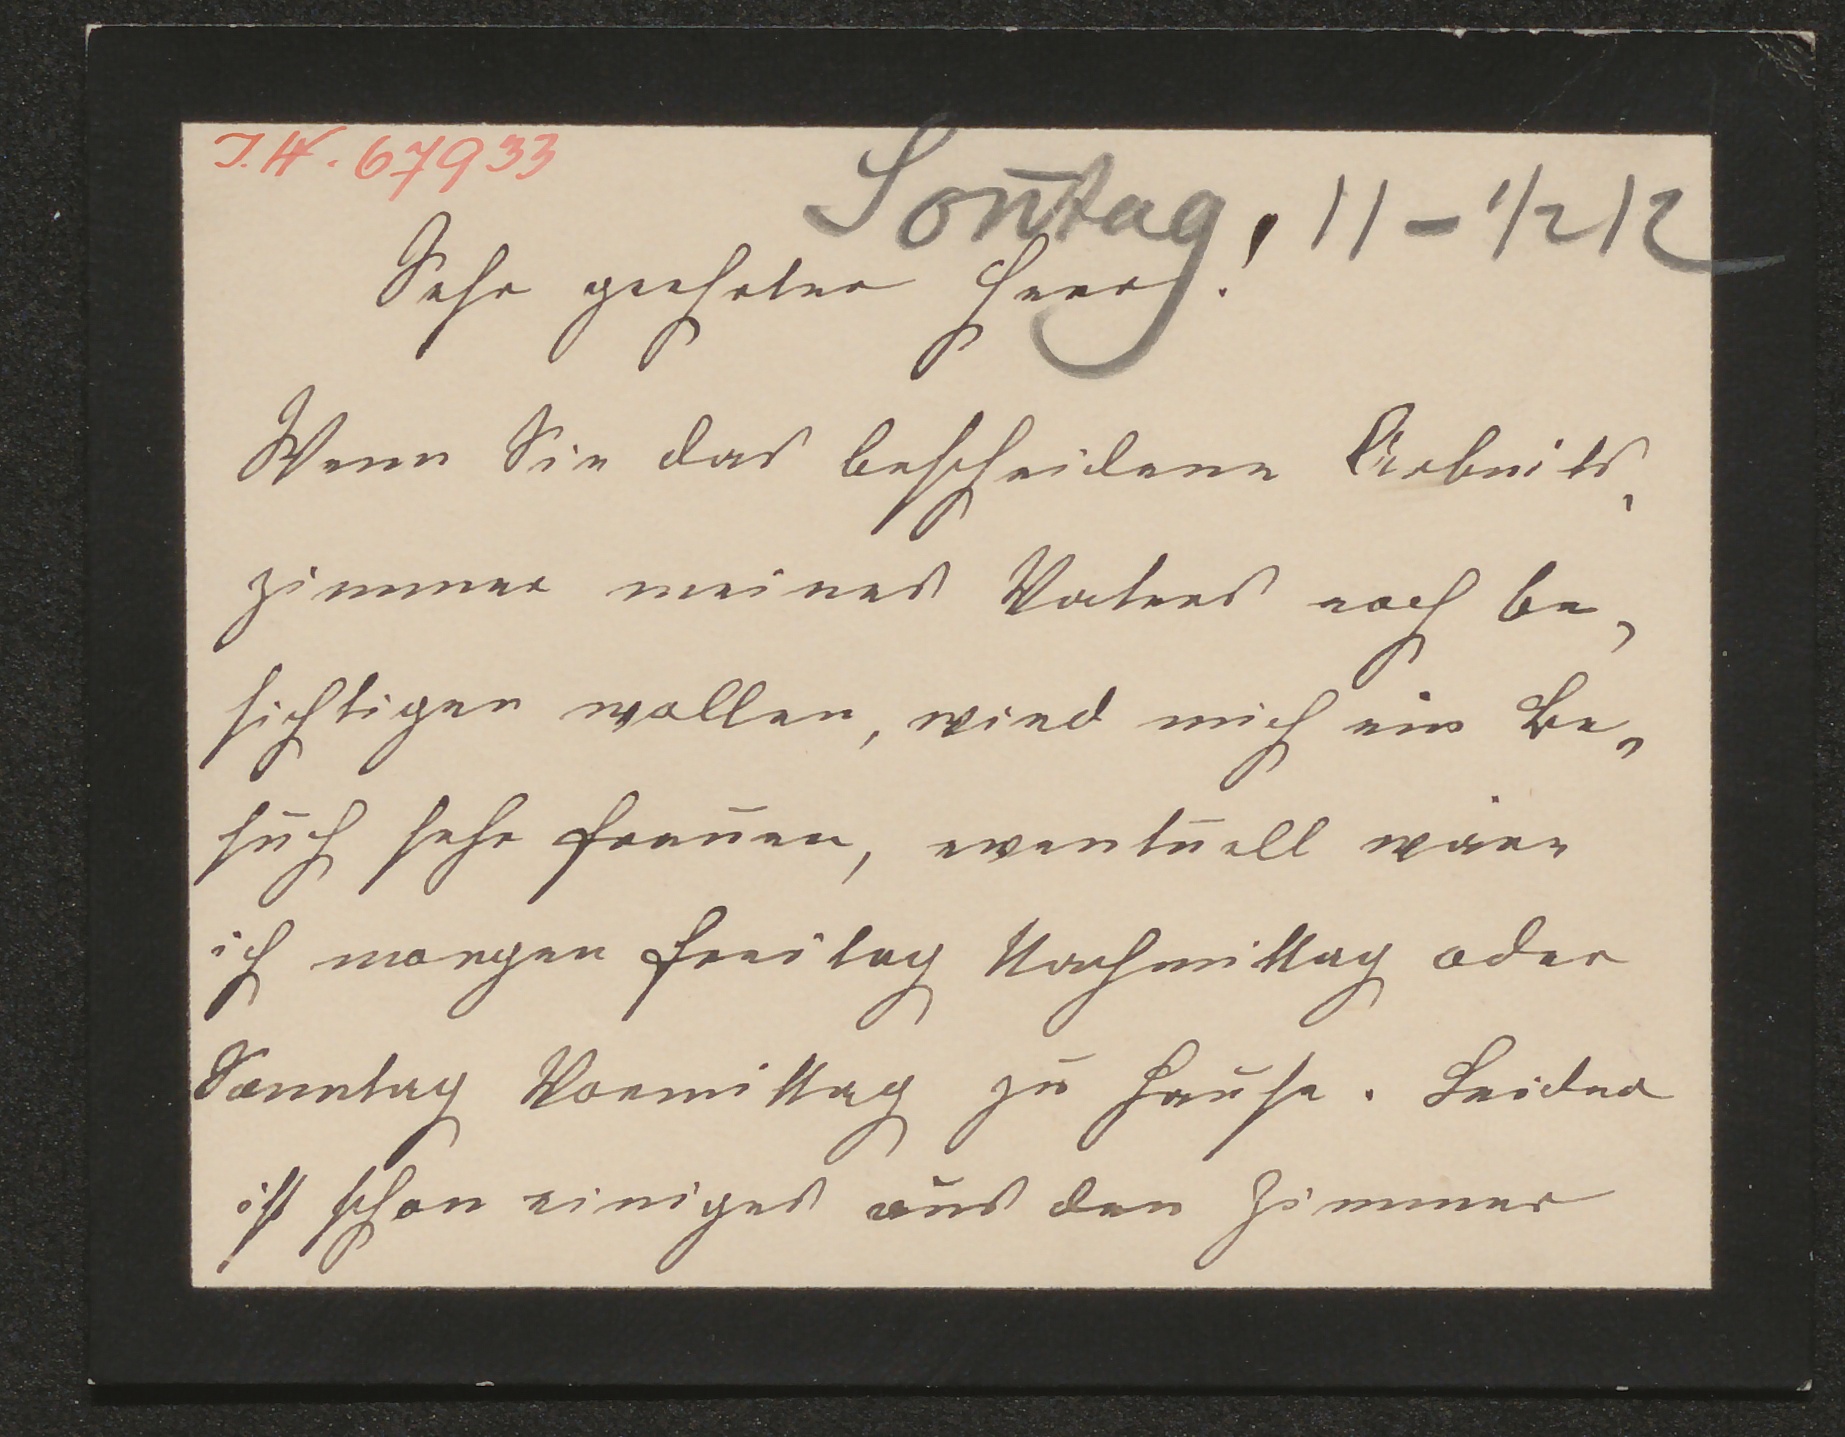 J.N. 67933
Sonntag, 11 - 1/2 12
Sehr geehrter Herr!
Wenn Sie das bescheidene Arbeits-
zimmer meines Vaters noch be-
sichtigen wollen, wird mich ein Be-
such sehr freuen, eventuell wäre
ich morgen Freitag Nachmittag oder
Sonntag Vormittag zu Hause. Leider
ist schon einiges aus dem Zimmer